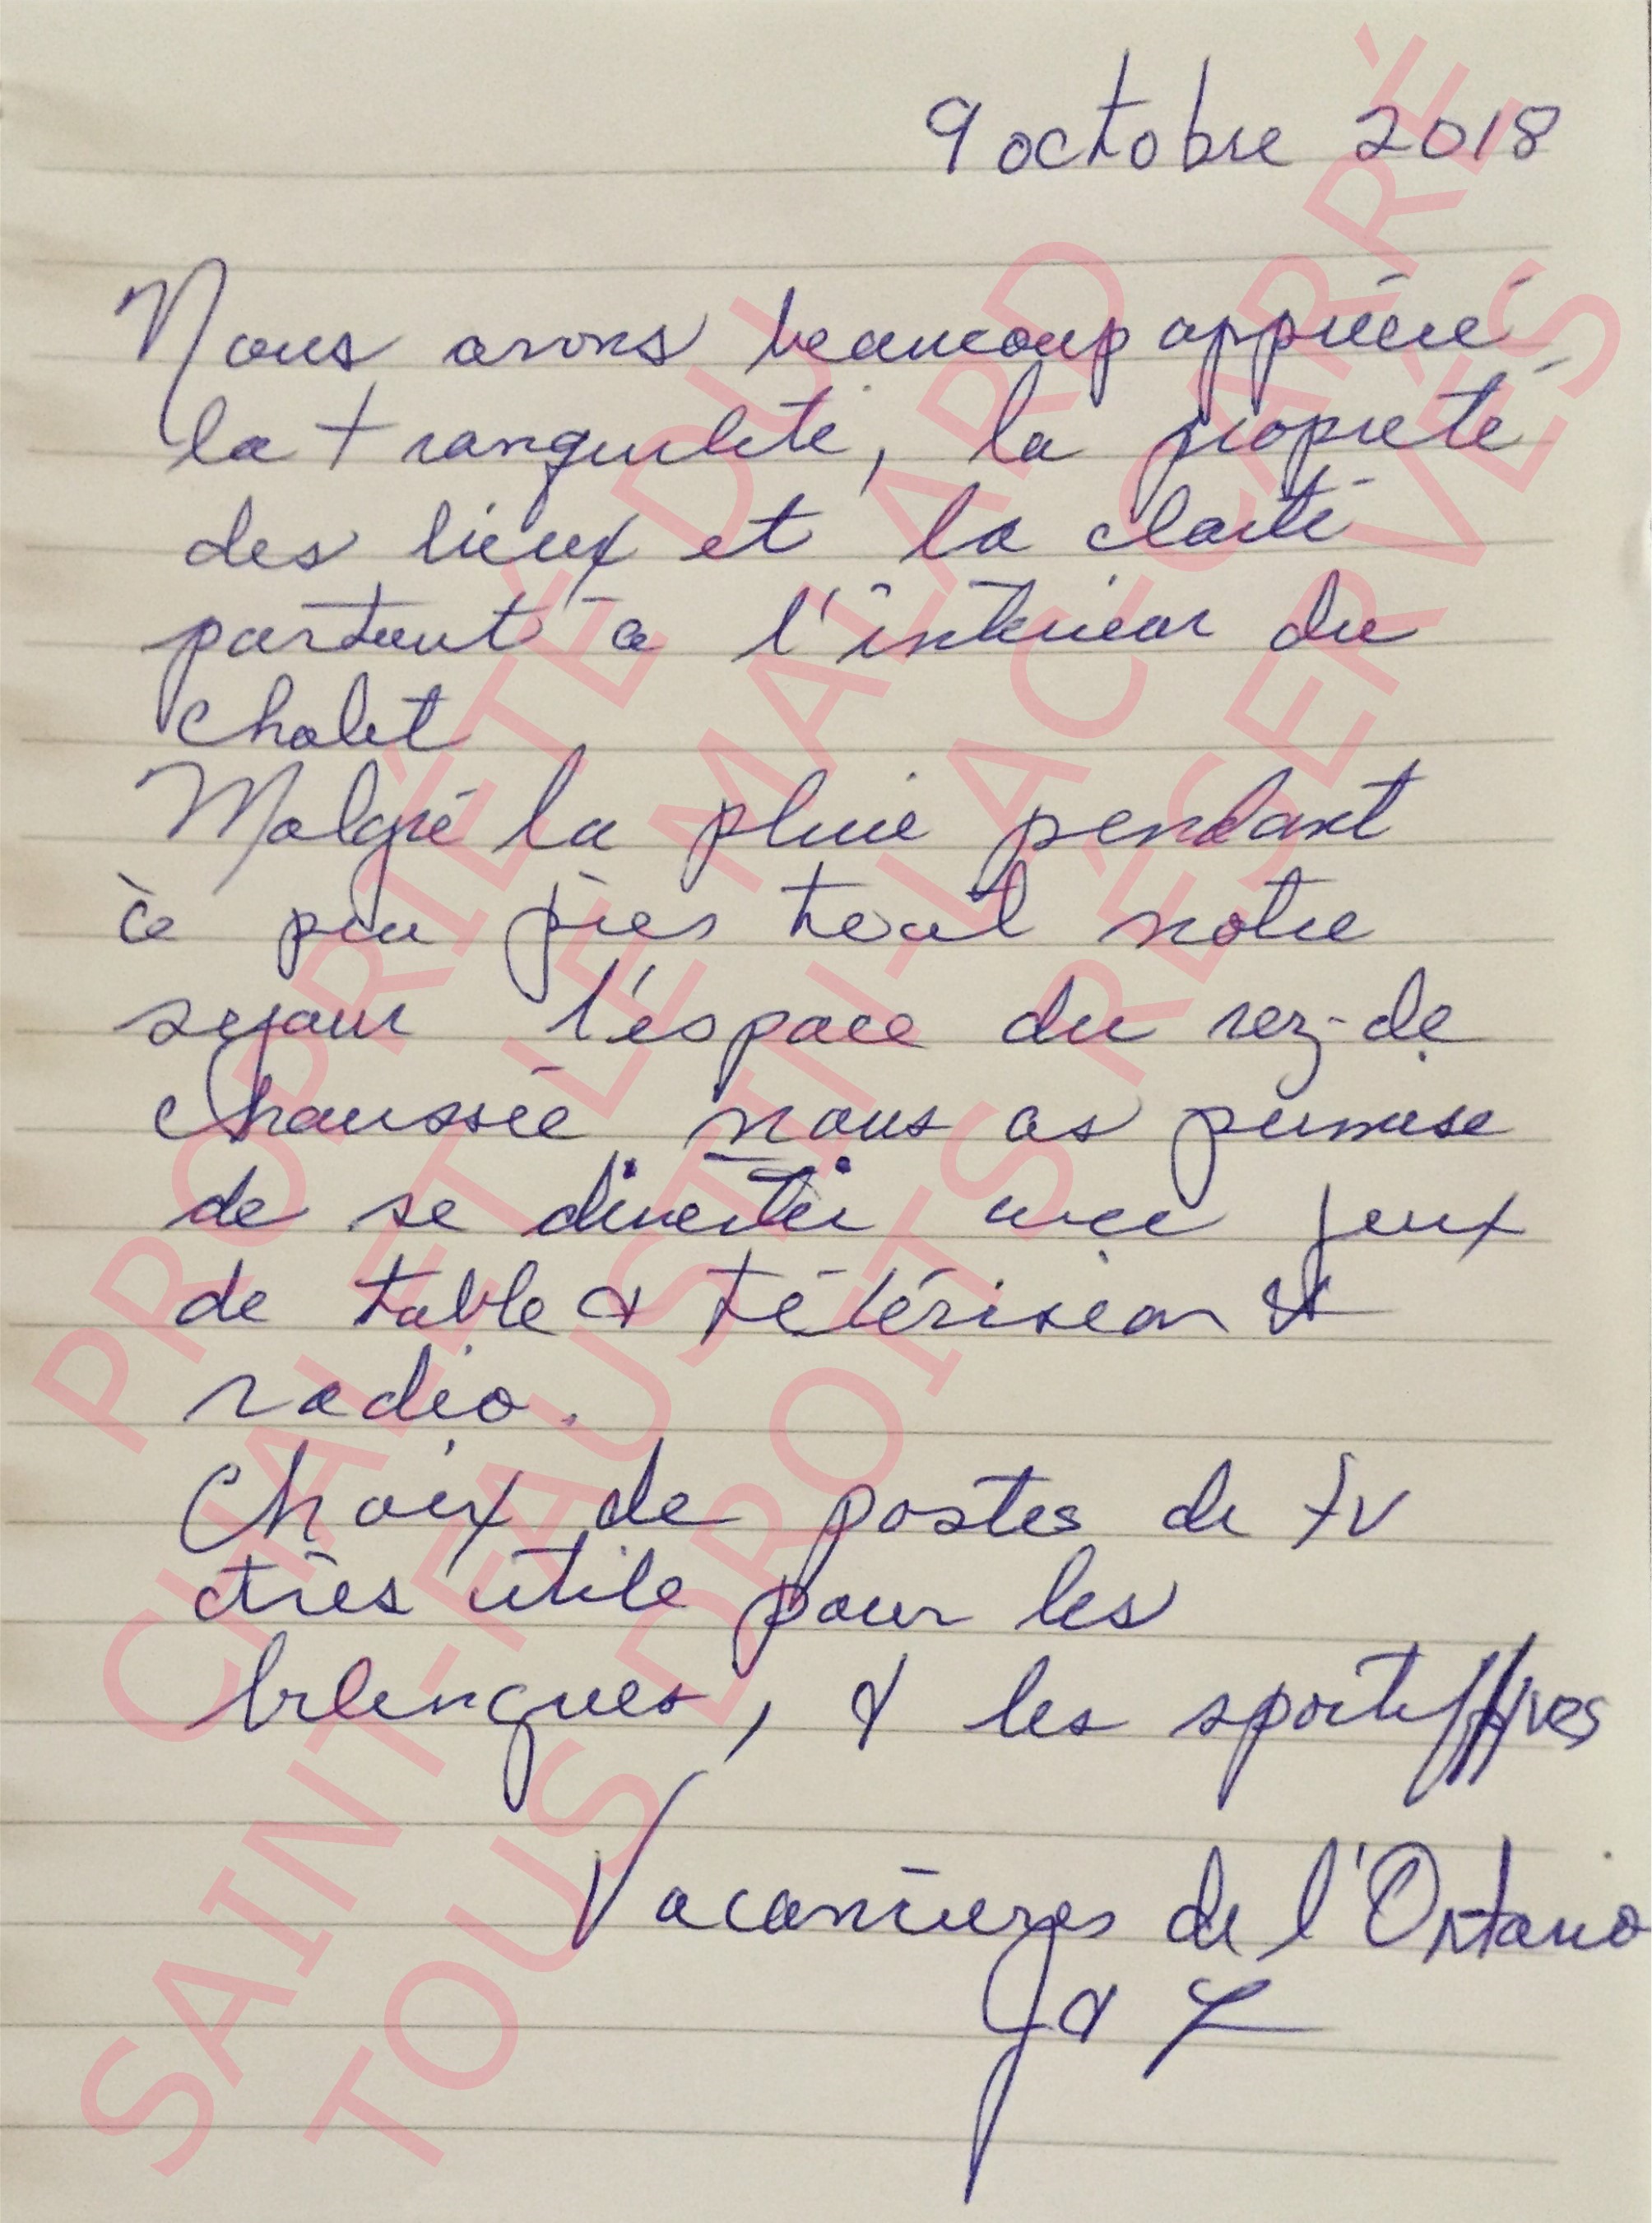 9 octobre 2018
Nous avons beaucoup apprécié
la tranquilité, la propreté
des lieux et la clarté
partout à l'intérieur du
chalet
Malgré la pluie pendant
à peu près tout notre
séjour l'éspace du rez-de
chaussée nous as permise
de se divertir avec jeux
de table & télévision et
radio.
Choix de postes de tv
très utile pour les
bilingues, & les sportifives
Vacancierzes de l'Ontario
J & L
PROPRIÉTÉ DU
CHALET LE MALARD
SAINT-FAUSTIN-LAC-CARRÉ
TOUS DROITS RÉSERVÉS